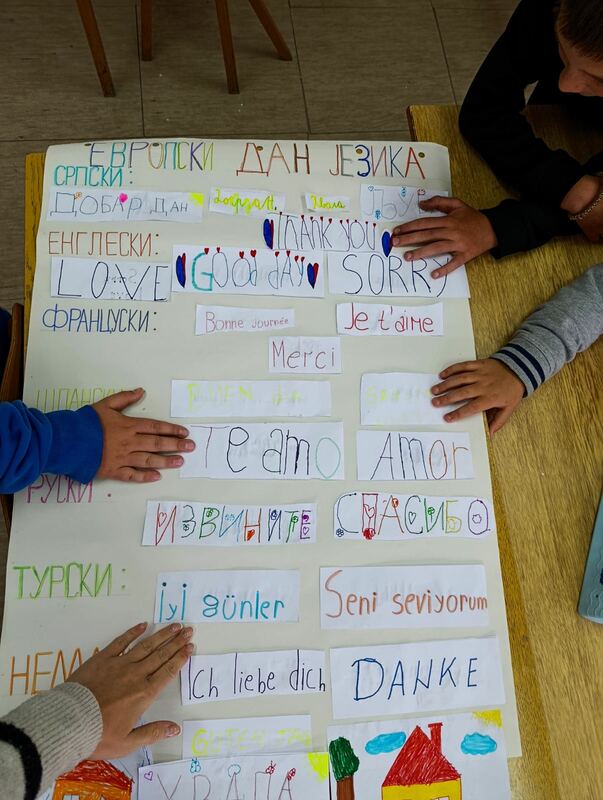 ЕВРОПСКИ ДАН ЈЕЗИКА
СРПСКИ:
ДОБАР ДАН
THANK YOU
ЕНГЛЕСКИ:
LOVE Good day SORRY
ФРАНЦУСКИ: Bonne Journée Je t'aime
Merci
ШПАНСКИ BUEN
Te amo Amor
РУСКИ
ИЗВИНИТЕ СПАСИБО
ТУРСКИ:
İyi günler Seni seviyorum
НЕМА
Ich liebe dich DANKE
GUTEN TAG